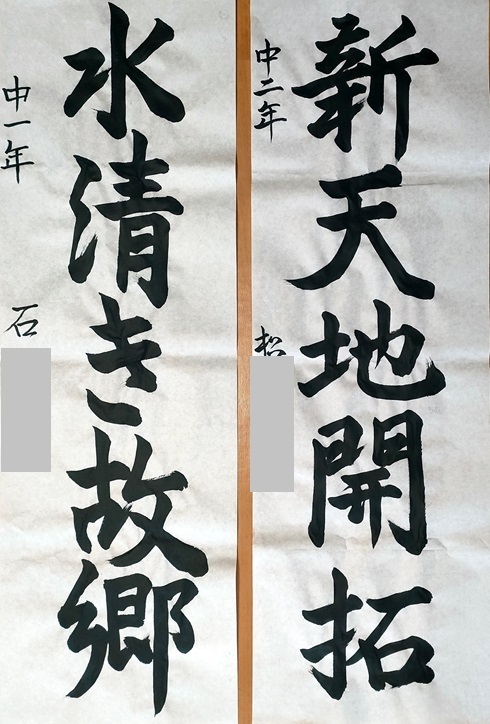 新天地開拓
中二年
水清き故郷
中一年 石